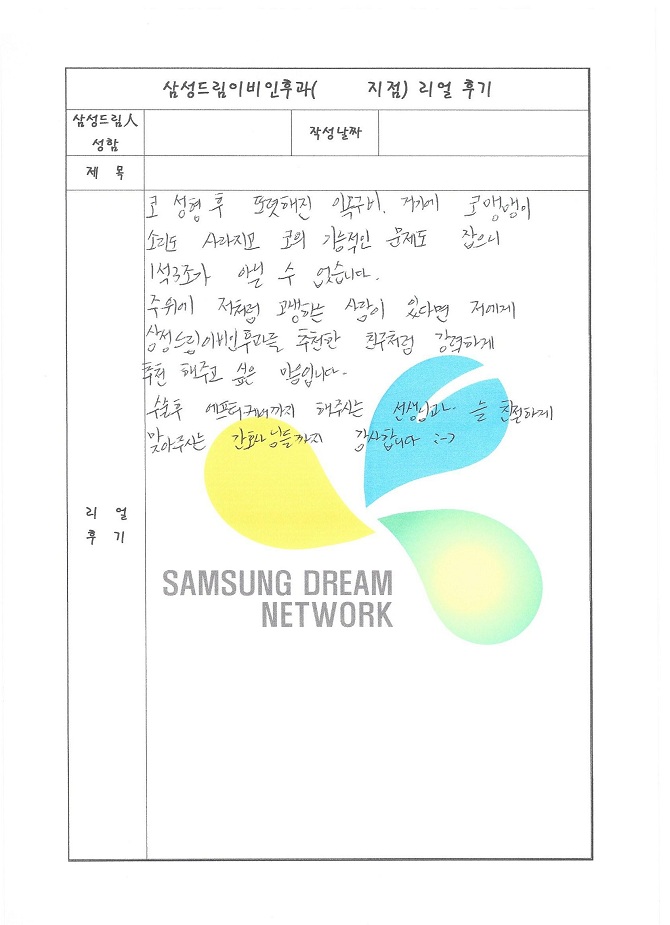 삼성드림이비인후과( 지점) 리얼 후기
삼성드림人
성함
작성날짜
제 목
코 성형 후 또렷해진 이목구비. 거기에 코맹맹이
소리도 사라지고 코의 기능적인 문제도 잡으니
1석3조가 아닐 수 없습니다.
주위에 저처럼 고생하는 사람이 있다면 저에게
삼성드림이비인후과를 추천한 친구처럼 강력하게
추천 해주고 싶은 마음입니다.
수술후 에프터케어까지 해주시는 선생님과. 늘 친절하게
맞아주시는 간호사님들까지 감사합니다 :->
리 얼
후 기
SAMSUNG DREAM
NETWORK